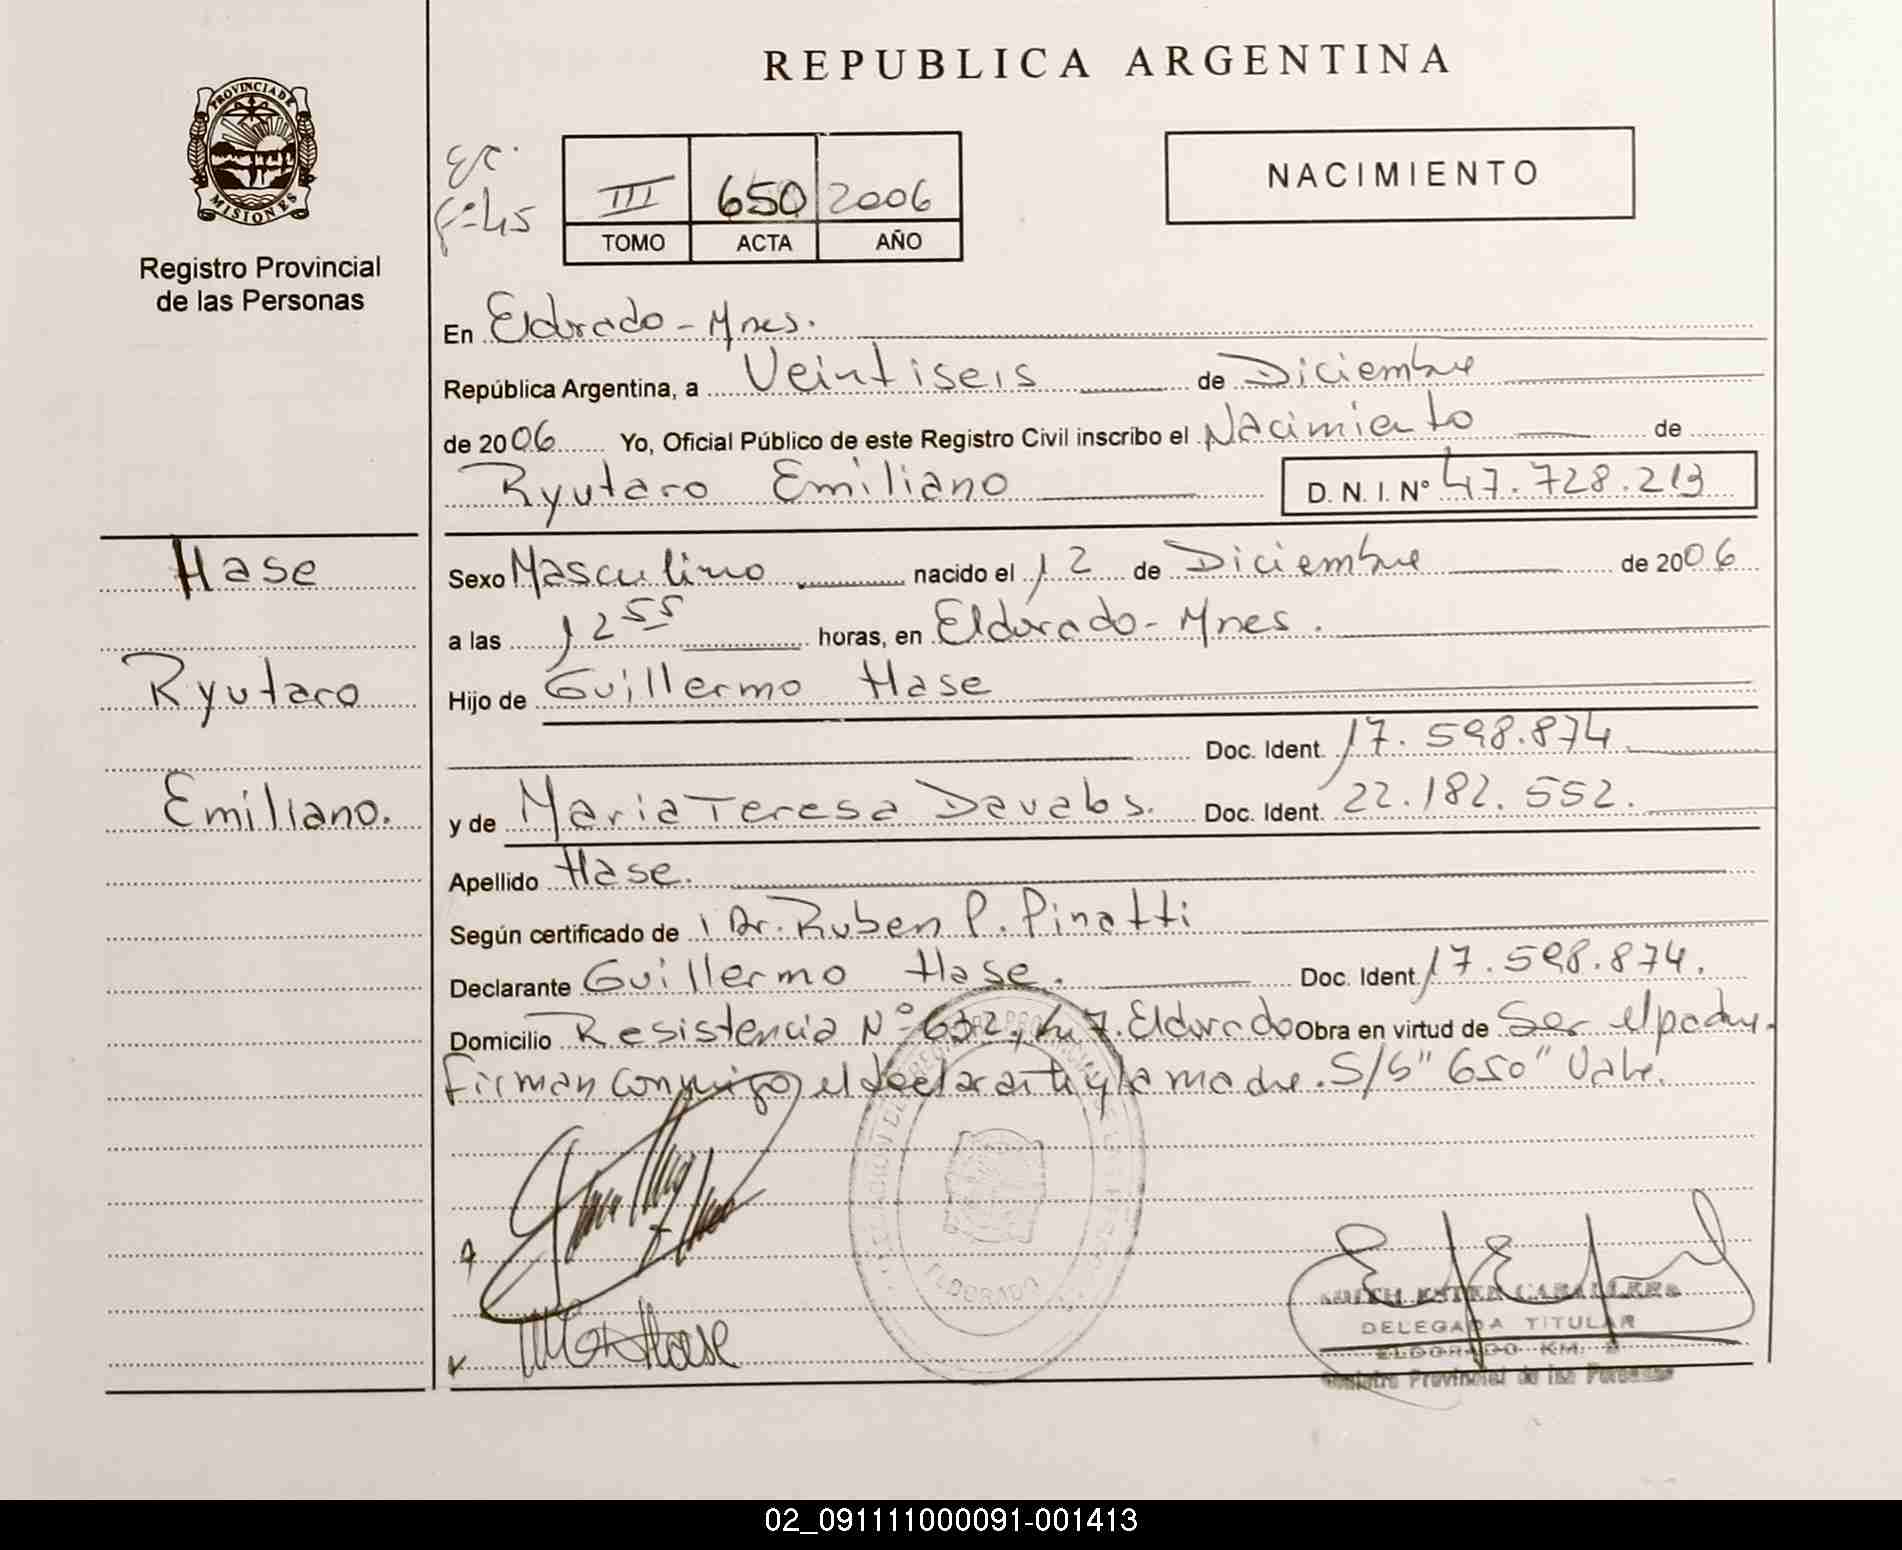 REPUBLICA ARGENTINA
PROVINCIA DE
MISIONES
Registro Provincial
de las Personas
F=45
III 650 2006
TOMO ACTA AÑO
NACIMIENTO
En Eldorado - Mnes.
República Argentina, a Veintiseis de Diciembre
de 2006 Yo, Oficial Público de este Registro Civil inscribo el Nacimiento de
Ryutaro Emiliano D. N. I. Nº 47.728.213
Hase
Ryutaro
Emiliano.
Sexo Masculino nacido el 12 de Diciembre de 2006
a las 12 55 horas, en Eldorado - Mnes.
Hijo de Guillermo Hase
Doc. Ident. 17.598.874
y de Maria Teresa Davalos. Doc. Ident. 22.182.552.
Apellido Hase.
Según certificado de Dr. Ruben P. Pinatti
Declarante Guillermo Hase. Doc. Ident. 17.598.874.
Domicilio Resistencia Nº 632, Eldorado Obra en virtud de Ser el padre.
Firman conmigo el declarante y la madre. S/b "650" Vale.
ELDORADO
EDITH ESTER CABALLERO
DELEGADA TITULAR
ELDORADO KM.
Registro Provincial de las Personas
02_091111000091-001413